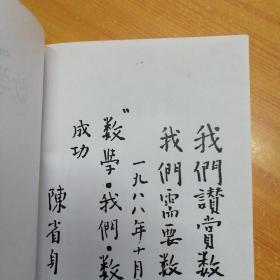 我們讚賞数
我們需要数
一九八八年十月
“数學·我們·数
成功
陳省身